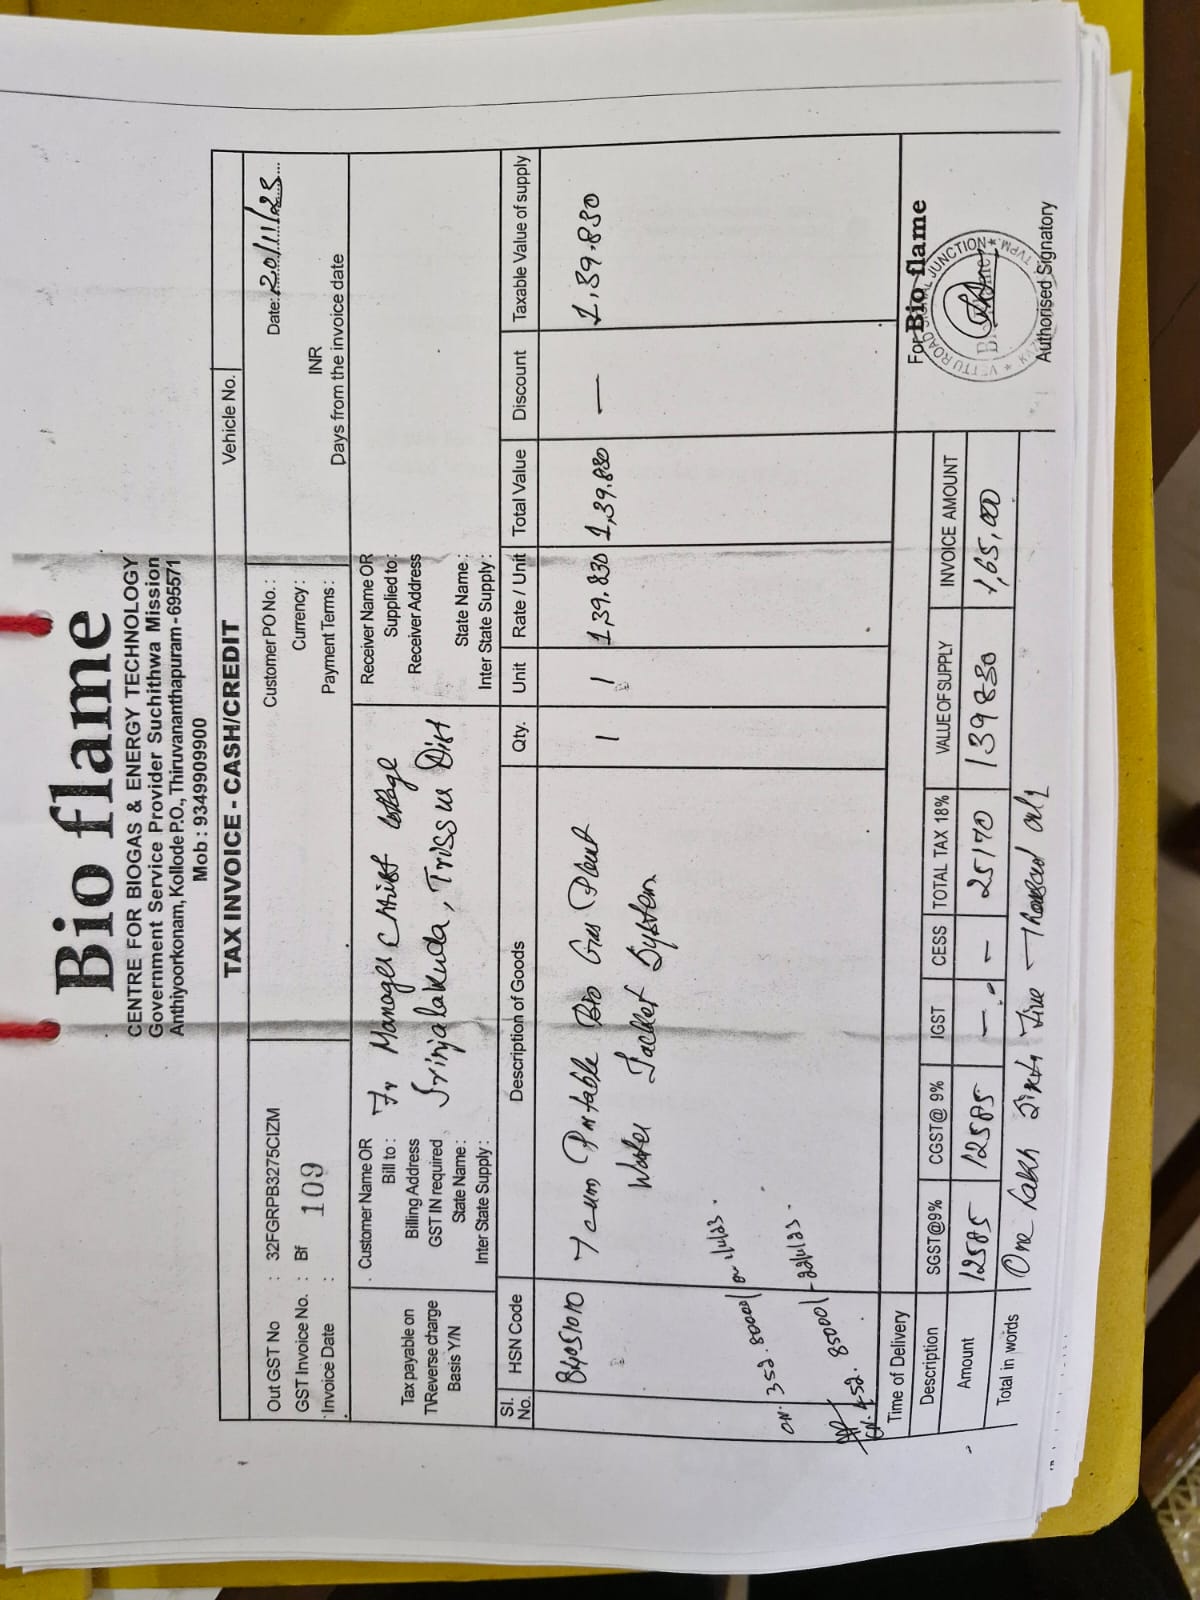 Bio flame
CENTRE FOR BIOGAS & ENERGY TECHNOLOGY
Government Service Provider Suchithwa Mission
Anthiyoorkonam, Kollode P.O., Thiruvananthapuram - 695571
Mob : 9349909900
TAX INVOICE - CASH/CREDIT
Vehicle No.
Out GST No : 32FGRPB3275CIZM
GST Invoice No. : Bf 109
Invoice Date :
Customer PO No. :
Currency: INR
Payment Terms: Days from the invoice date
Date: 20/11/23
Tax payable on
TVReverse charge
Basis Y/N
Customer Name OR
Bill to : Fr Manager Christ College
Billing Address Irinjalakuda, Trissur Dist
GST IN required
State Name :
Inter State Supply :
Receiver Name OR
Supplied to:
Receiver Address
State Name :
Inter State Supply :
Sl. No. HSN Code Description of Goods Qty. Unit Rate / Unit Total Value Discount Taxable Value of supply
84051010 7 cum Portable Bio Gas Plant 1 1 1,39,830 1,39,830 — 1,39,830
Water Jacket System
CN. 352. 80000/
CN. 452. 85000/
Time of Delivery
Description SGST@9% CGST@ 9% IGST CESS TOTAL TAX 18% VALUE OF SUPPLY INVOICE AMOUNT
Amount 12585 12585 — — 25170 139830 1,65,000
Total in words One Lakh Sixty Five Thousand only
For Bio flame
VETTU ROAD SIGNAL JUNCTION
TVPM
Authorised Signatory